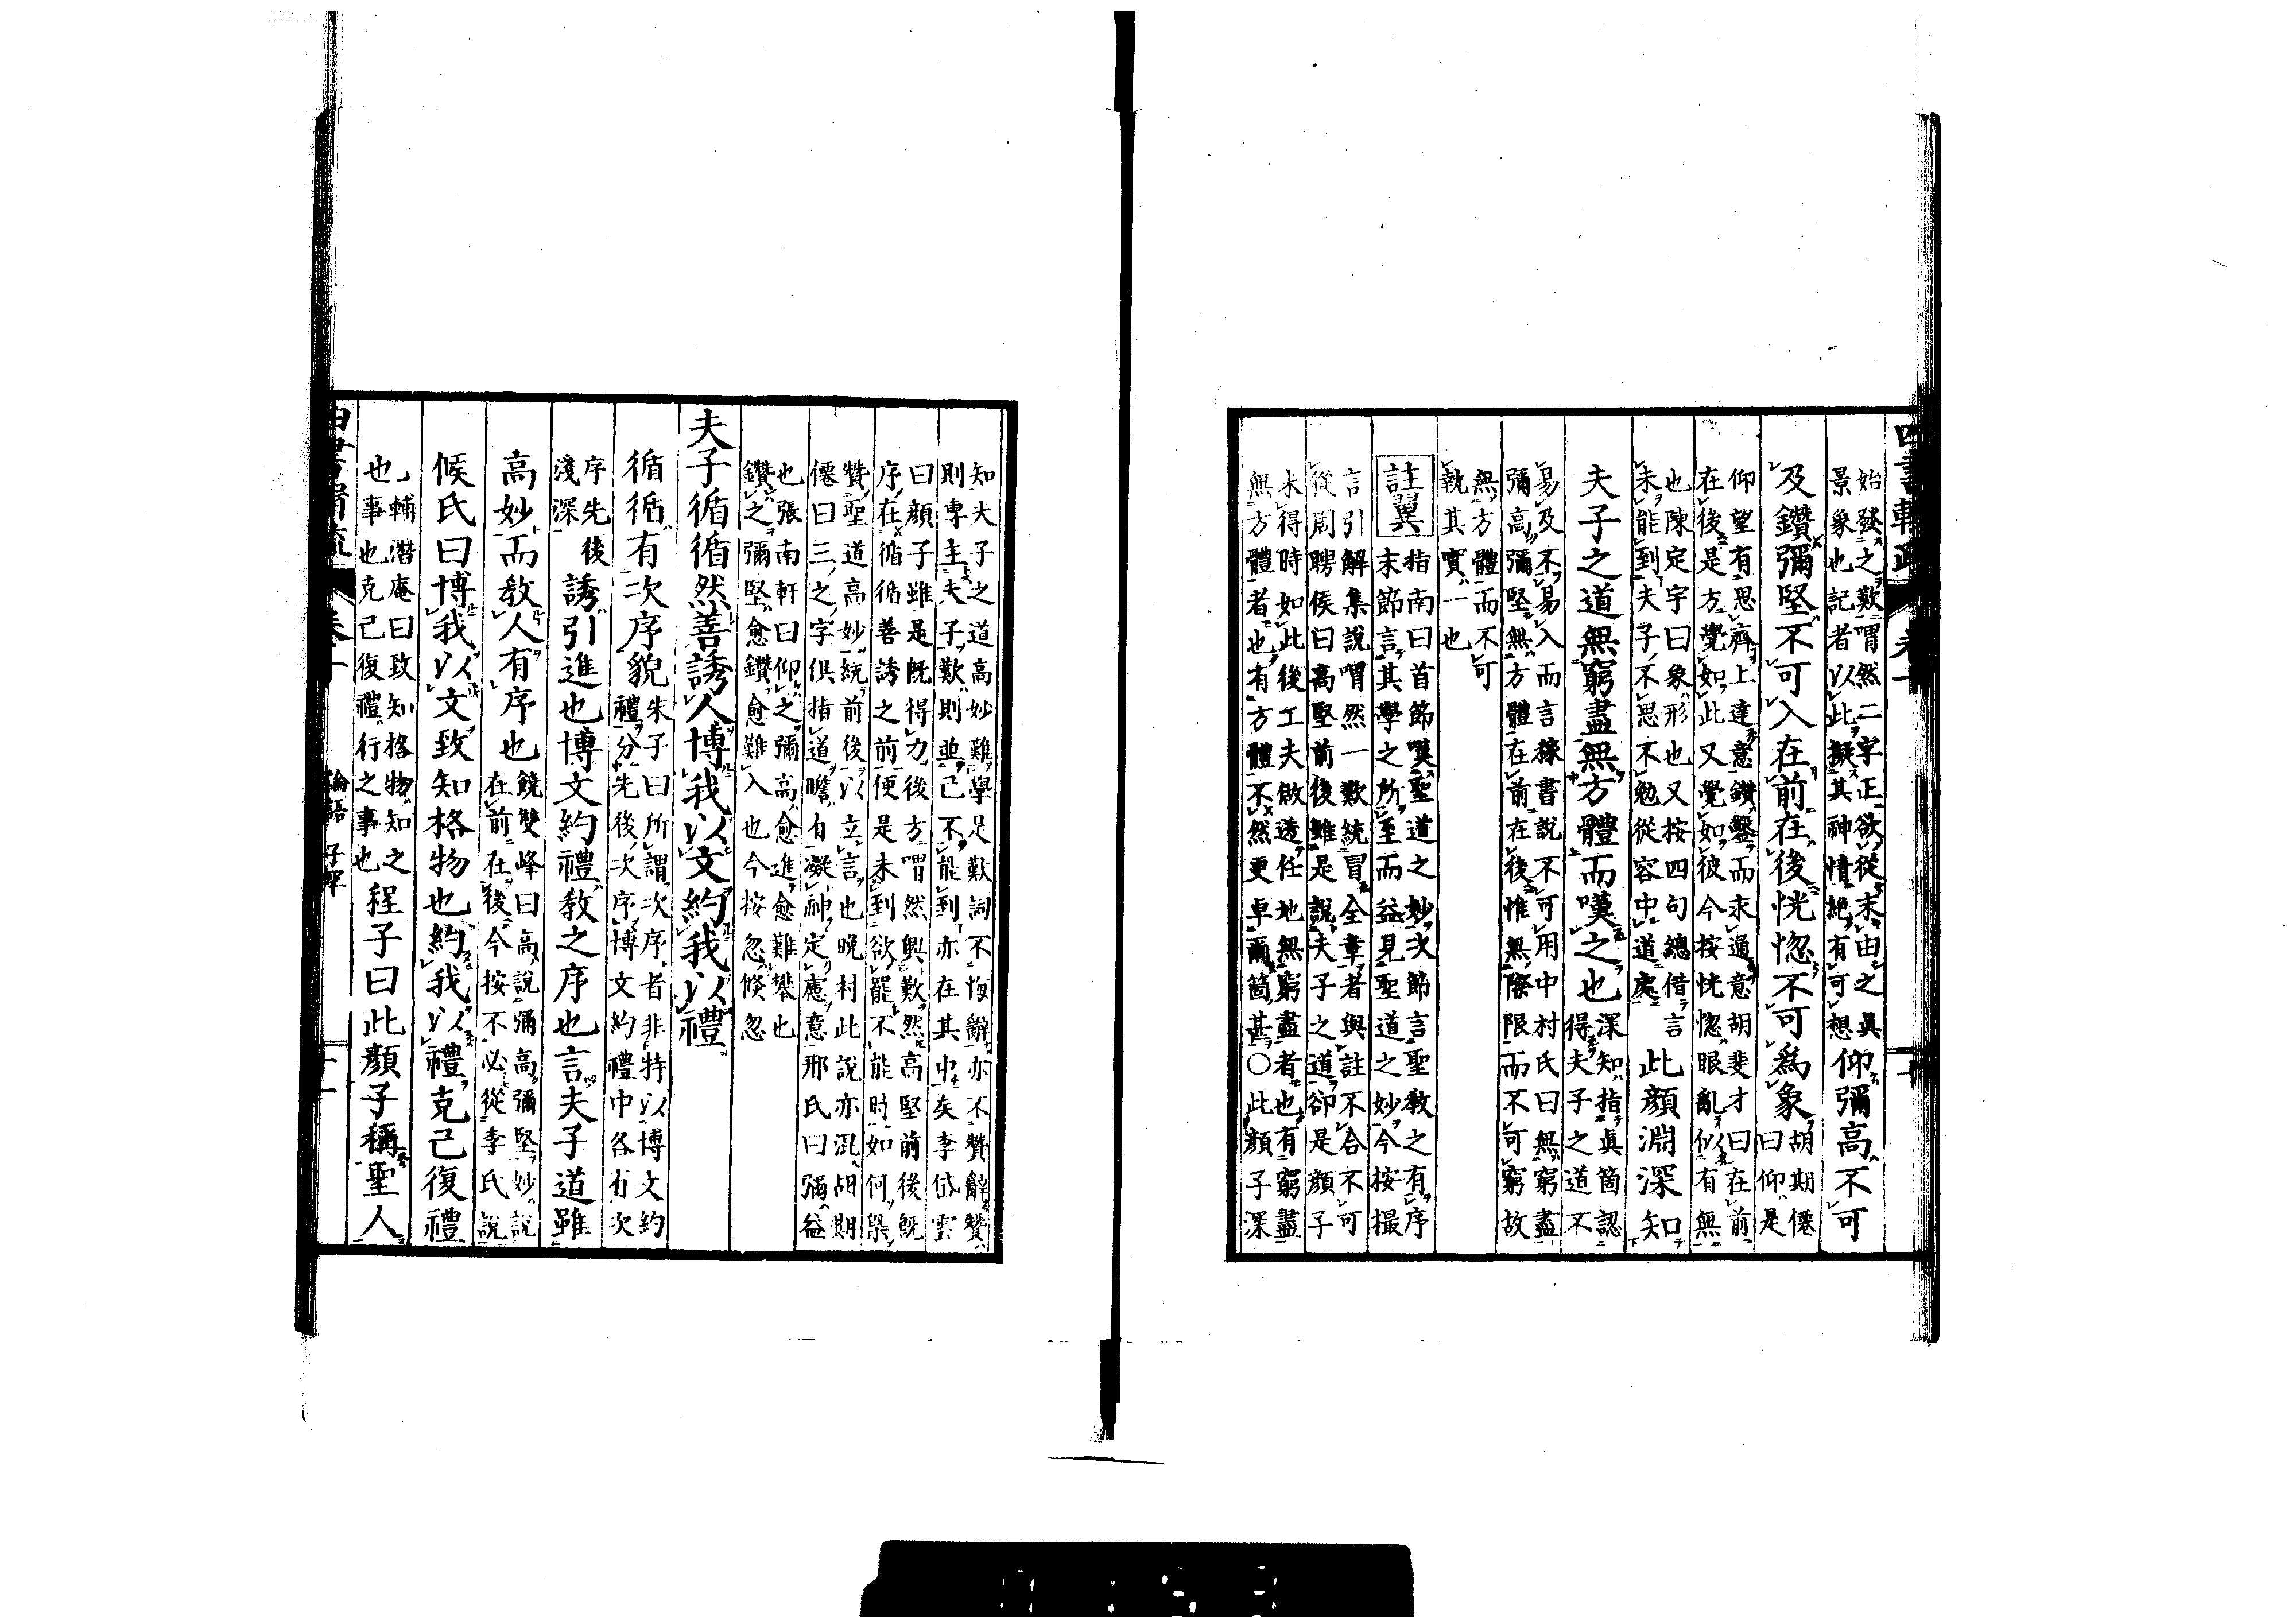 始發之歎喟然二字正欲從末由之眞
景象也記者以此擬其神情絶有可想
仰彌高不可
及鑽彌堅不可入在前在後恍惚不可爲象
胡期僊
曰仰是
仰望有思齊上達意鑽鑿而求通意胡斐才曰在前
在後是方覺如此又覺如彼今按恍惚眼亂似有無
也陳定宇曰象形也又按四句總借言
未能到夫子不思不勉從容中道處
此顔淵深知
夫子之道無窮盡無方體而嘆之也
深知指眞箇認
得夫子之道不
易及不易入而言稼書說不可用中村氏曰無窮盡
彌高彌堅無方體在前在後惟無際限而不可窮故
無方體而不可
執其實一也
註翼
指南曰首節嘆聖道之妙次節言聖教之有序
末節言其學之所至而益見聖道之妙今按撮
言引解集說喟然一歎統冒全章者與註不合不可
從周聘侯曰高堅前後雖是說夫子之道卻是顔子
未得時如此後工夫做透任地無窮盡者也有窮盡
無方體者也有方體不然更卓爾箇甚〇此顔子深
知夫子之道高妙難學是歎詞不悔辭亦不贊辭贊
則專主夫子歎則並己不能到亦在其中矣李岱雲
曰顔子雖是既得力後方喟然興歎然高堅前後既
序在循循善誘之前便是未到欲罷不能時如何槩
贊聖道高妙統前後以立言也晩村此說亦混胡期
僊曰三之字俱指道瞻有凝神定慮意邢氏曰彌益
也張南軒曰仰之彌高愈進愈難攀也
鑽之彌堅愈鑽愈難入也今按忽倏忽
夫子循循然善誘人博我以文約我以禮
循循有次序貌
朱子曰所謂次序者非特以博文約
禮分先後次序博文約禮中各有次
序先後
淺深
誘引進也博文約禮教之序也言夫子道雖
高妙而教人有序也
饒雙峰曰高說彌高彌堅妙說
在前在後今按不必從李氏說
候氏曰博我以文致知格物也約我以禮克己復禮
也
輔潛庵曰致知格物知之
事也克己復禮行之事也
程子曰此顔子稱聖人
論語 子罕